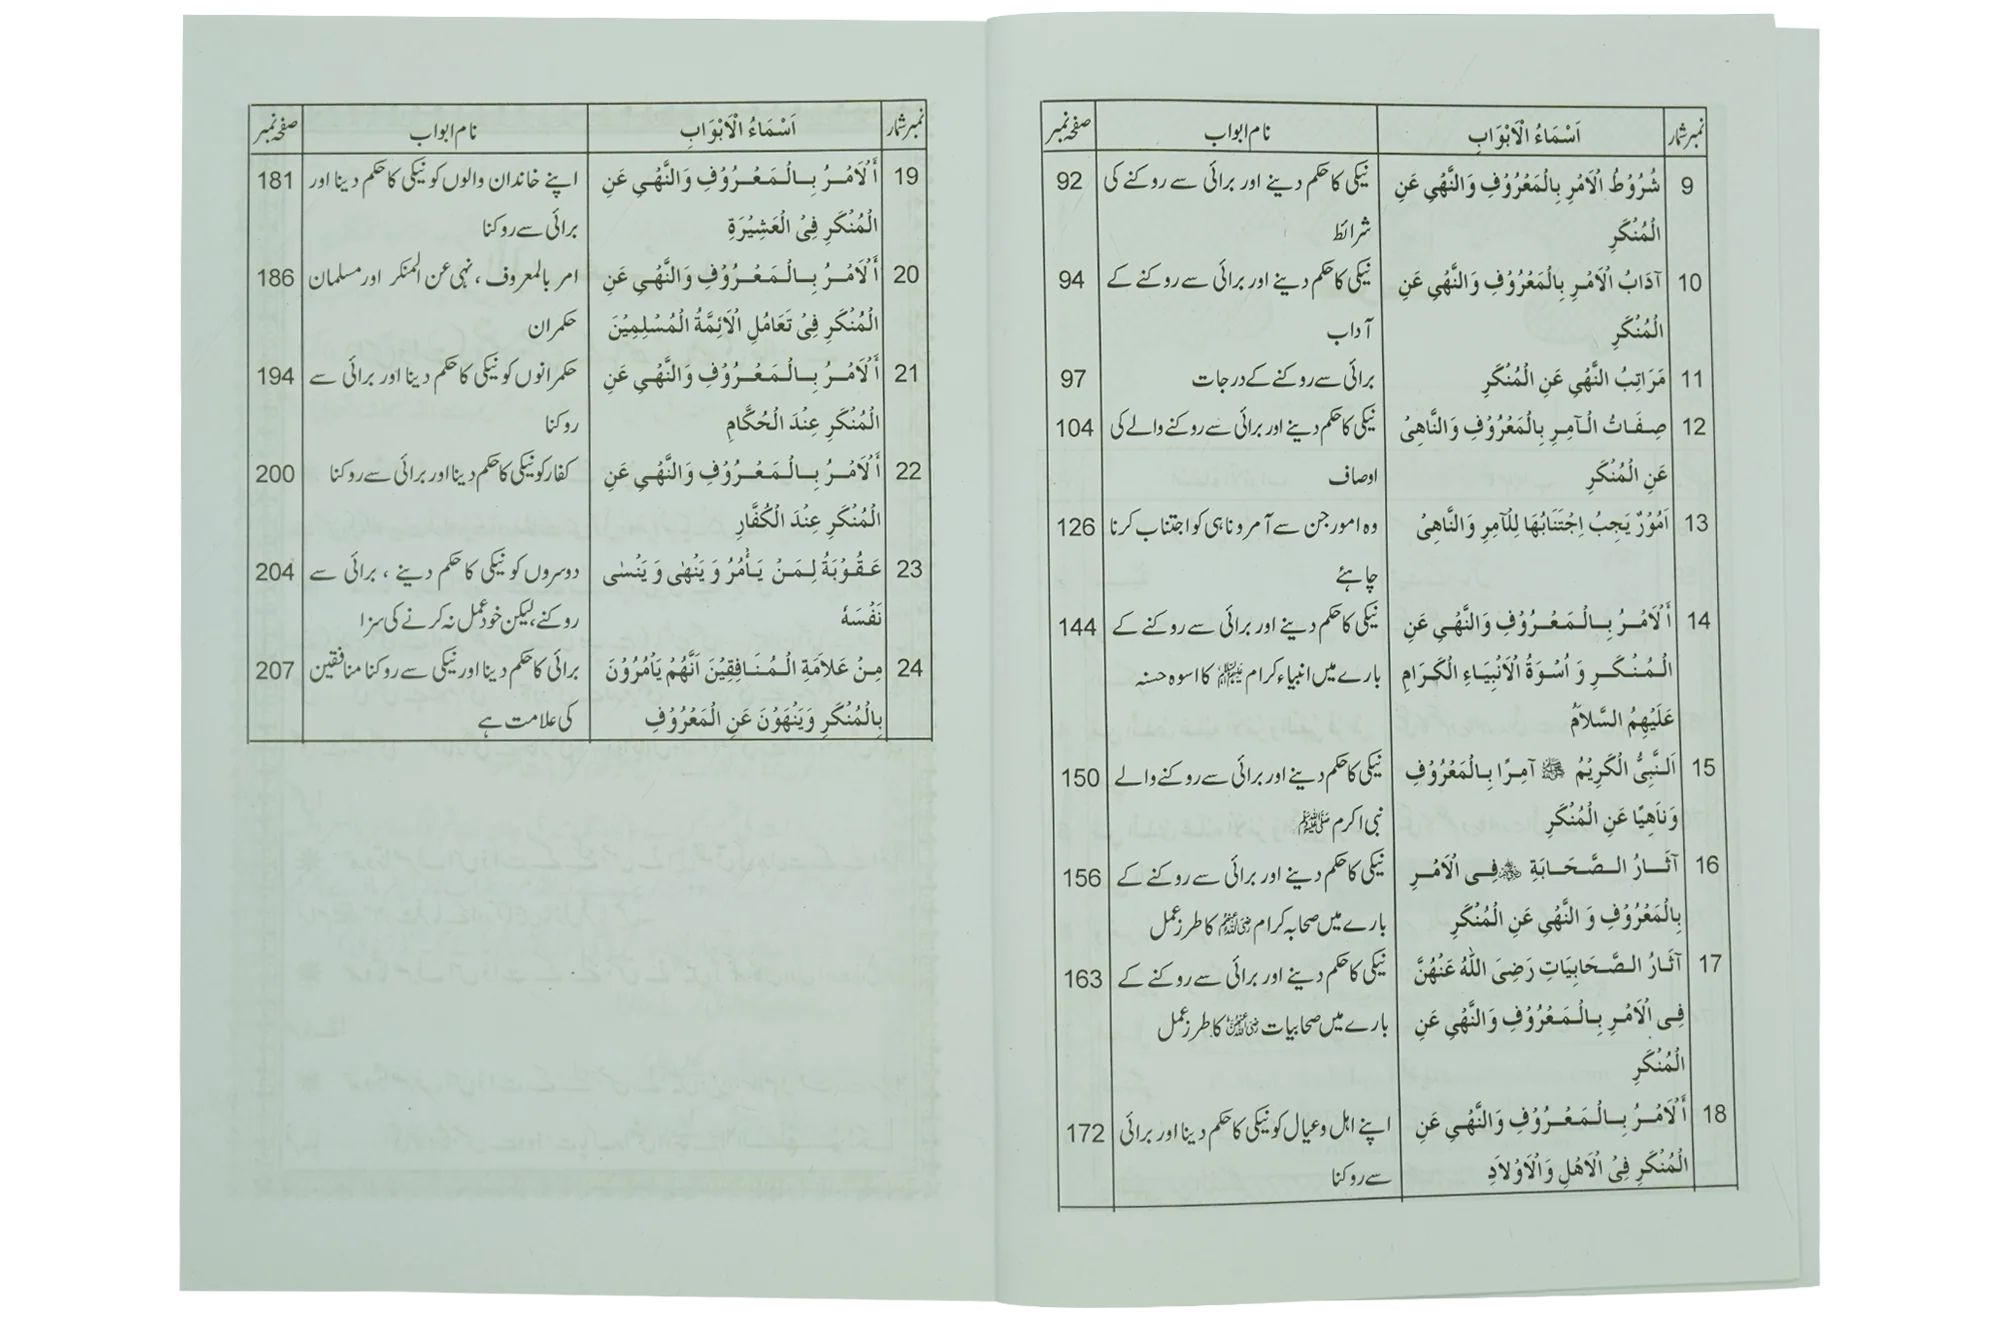 نمبر شمار اَسْمَاءُ الْاَبْوَابِ نام ابواب صفحہ نمبر
9 شُرُوْطُ الْاَمْرِ بِالْمَعْرُوْفِ وَالنَّهْیِ عَنِ نیکی کا حکم دینے اور برائی سے روکنے کی 92
الْمُنْكَرِ شرائط
10 آدَابُ الْاَمْرِ بِالْمَعْرُوْفِ وَالنَّهْیِ عَنِ نیکی کا حکم دینے اور برائی سے روکنے کے 94
الْمُنْكَرِ آداب
11 مَرَاتِبُ النَّهْیِ عَنِ الْمُنْكَرِ برائی سے روکنے کے درجات 97
12 صِفَاتُ الْآمِرِ بِالْمَعْرُوْفِ وَالنَّاهِیْ نیکی کا حکم دینے اور برائی سے روکنے والے کی 104
عَنِ الْمُنْكَرِ اوصاف
13 اَمُوْرٌ یَجِبُ اِجْتَنَابُهَا لِلْآمِرِ وَالنَّاهِیْ وہ امور جن سے آمر و ناہی کو اجتناب کرنا 126
چاہئے
14 أَلْاَمْرُ بِالْمَعْرُوْفِ وَالنَّهْیِ عَنِ نیکی کا حکم دینے اور برائی سے روکنے کے 144
الْمُنْكَرِ وَ اُسْوَةُ الْاَنْبِیَاءِ الْكَرَامِ بارے میں انبیاء کرام علیہم السلام کا اسوہ حسنہ
عَلَیْهِمُ السَّلاَمُ
15 اَلنَّبِیُّ الْكَرِیْمُ ﷺ آمِرًا بِالْمَعْرُوْفِ نیکی کا حکم دینے اور برائی سے روکنے والے 150
وَنَاهِیًا عَنِ الْمُنْكَرِ نبی اکرم ﷺ
16 آثَارُ الصَّحَابَةِ فِی الْاَمْرِ نیکی کا حکم دینے اور برائی سے روکنے کے 156
بِالْمَعْرُوْفِ وَ النَّهْیِ عَنِ الْمُنْكَرِ بارے میں صحابہ کرام کا طرز عمل
17 آثَارُ الصَّحَابِیَاتِ رَضِیَ اللّٰهُ عَنْهُنَّ نیکی کا حکم دینے اور برائی سے روکنے کے 163
فِی الْاَمْرِ بِالْمَعْرُوْفِ وَالنَّهْیِ عَنِ بارے میں صحابیات کا طرز عمل
الْمُنْكَرِ
18 أَلْاَمْرُ بِالْمَعْرُوْفِ وَالنَّهْیِ عَنِ اپنے اہل و عیال کو نیکی کا حکم دینا اور برائی 172
الْمُنْكَرِ فِیْ الْاَهْلِ وَالْاَوْلاَدِ سے روکنا
نمبر شمار اَسْمَاءُ الْاَبْوَابِ نام ابواب صفحہ نمبر
19 أَلْاَمْرُ بِالْمَعْرُوْفِ وَالنَّهْیِ عَنِ اپنے خاندان والوں کو نیکی کا حکم دینا اور 181
الْمُنْكَرِ فِیْ الْعَشِیْرَةِ برائی سے روکنا
20 أَلْاَمْرُ بِالْمَعْرُوْفِ وَالنَّهْیِ عَنِ امر بالمعروف ، نہی عن المنکر اور مسلمان 186
الْمُنْكَرِ فِیْ تَعَامُلِ الْاَئِمَّةُ الْمُسْلِمِیْنَ حکمران
21 أَلْاَمْرُ بِالْمَعْرُوْفِ وَالنَّهْیِ عَنِ حکمرانوں کو نیکی کا حکم دینا اور برائی سے 194
الْمُنْكَرِ عِنْدَ الْحُكَّامِ روکنا
22 أَلْاَمْرُ بِالْمَعْرُوْفِ وَالنَّهْیِ عَنِ کفار کو نیکی کا حکم دینا اور برائی سے روکنا 200
الْمُنْكَرِ عِنْدَ الْكُفَّارِ
23 عَقُوْبَةُ لِمَنْ یَأْمُرُ وَ یَنْهٰی وَ یَنْسٰی دوسروں کو نیکی کا حکم دینے ، برائی سے 204
نَفْسَهٗ روکنے، لیکن خود عمل نہ کرنے کی سزا
24 مِنْ عَلاَمَةِ الْمُنَافِقِیْنَ اَنَّهُمْ یَاْمُرُوْنَ برائی کا حکم دینا اور نیکی سے روکنا منافقین 207
بِالْمُنْكَرِ وَیَنْهَوْنَ عَنِ الْمَعْرُوْفِ کی علامت ہے